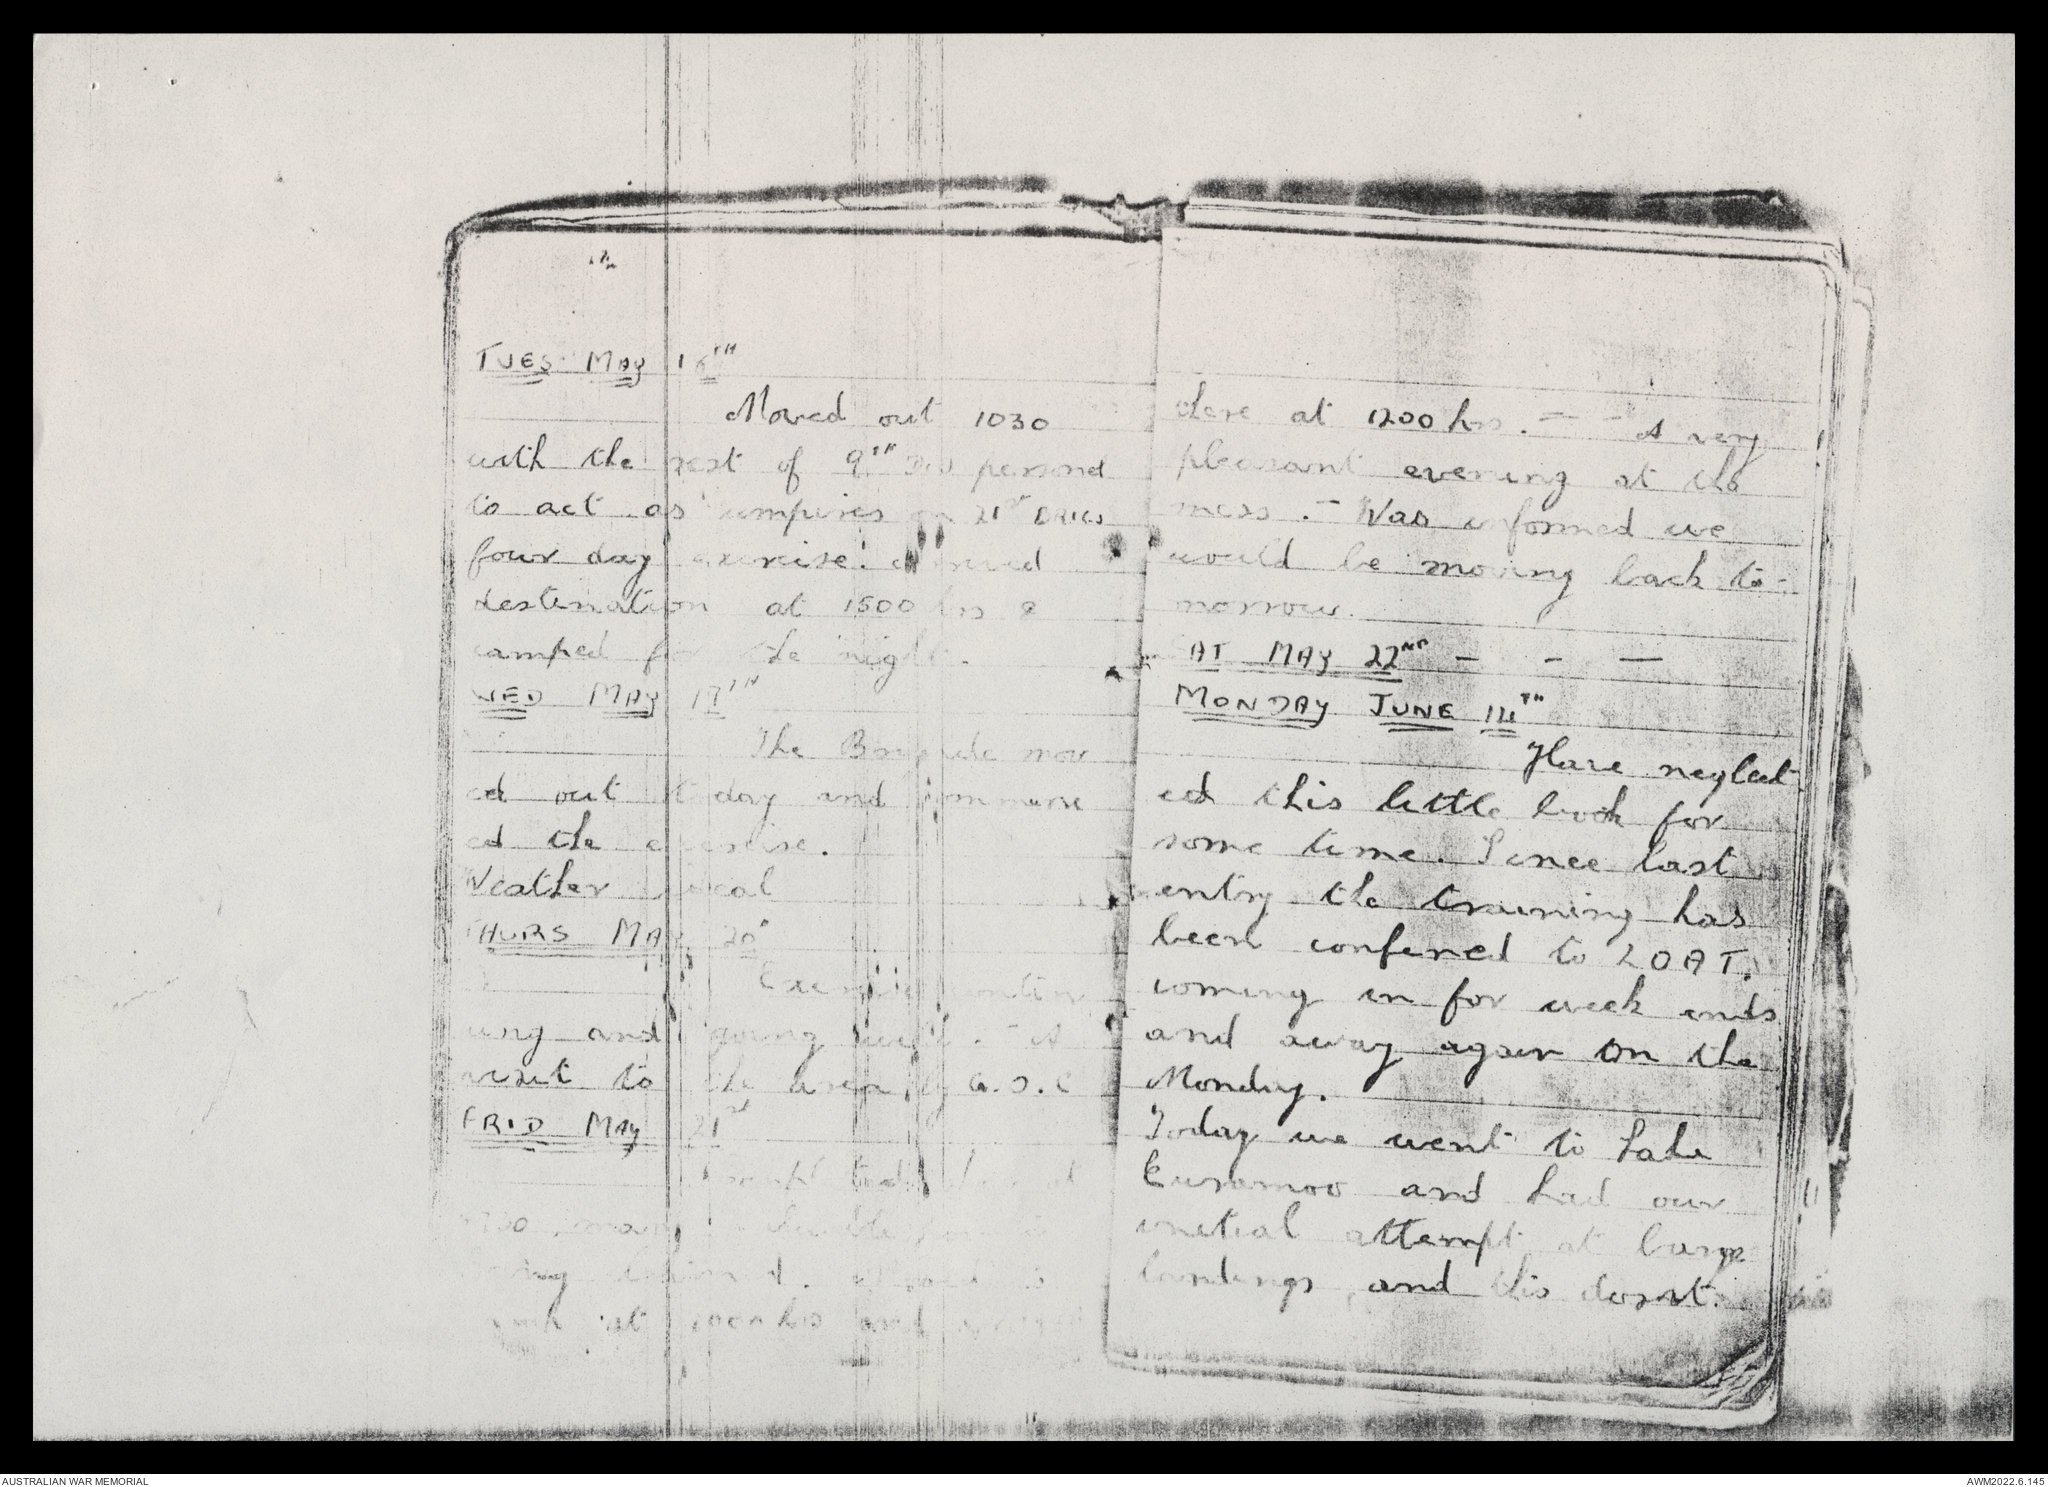 TUES MAY 18TH
Moved out 1030
with the rest of 9TH DIV personel
to act as umpires on 21ST BRIGS
four day exercise. Arrived
destination at 1500 hrs &
camped for the night.
WED MAY 19TH
The Brigade mov
ed out today and commenc
ed the exercise.
Weather ideal
THURS MAY 20
Exercise contin
uing and going well. - A
visit to the area by G.O.C
FRID MAY 21ST
Completed
many valuable
being
at and
here at 1200 hrs. — — A very
pleasant evening at the
mess. — Was informed we
would be moving back to-
morrow.
SAT MAY 22ND — - —
MONDAY JUNE 14TH
Have neglect
ed this little book for
some time. Since last
entry the training has
been confined to LOAT.
coming in for week ends
and away again on the
Monday.
Today we went to Lake
Euramoo and had our
inetial attempt at barge
landings, and this dosnt.
AUSTRALIAN WAR MEMORIAL
AWM2022.6.145